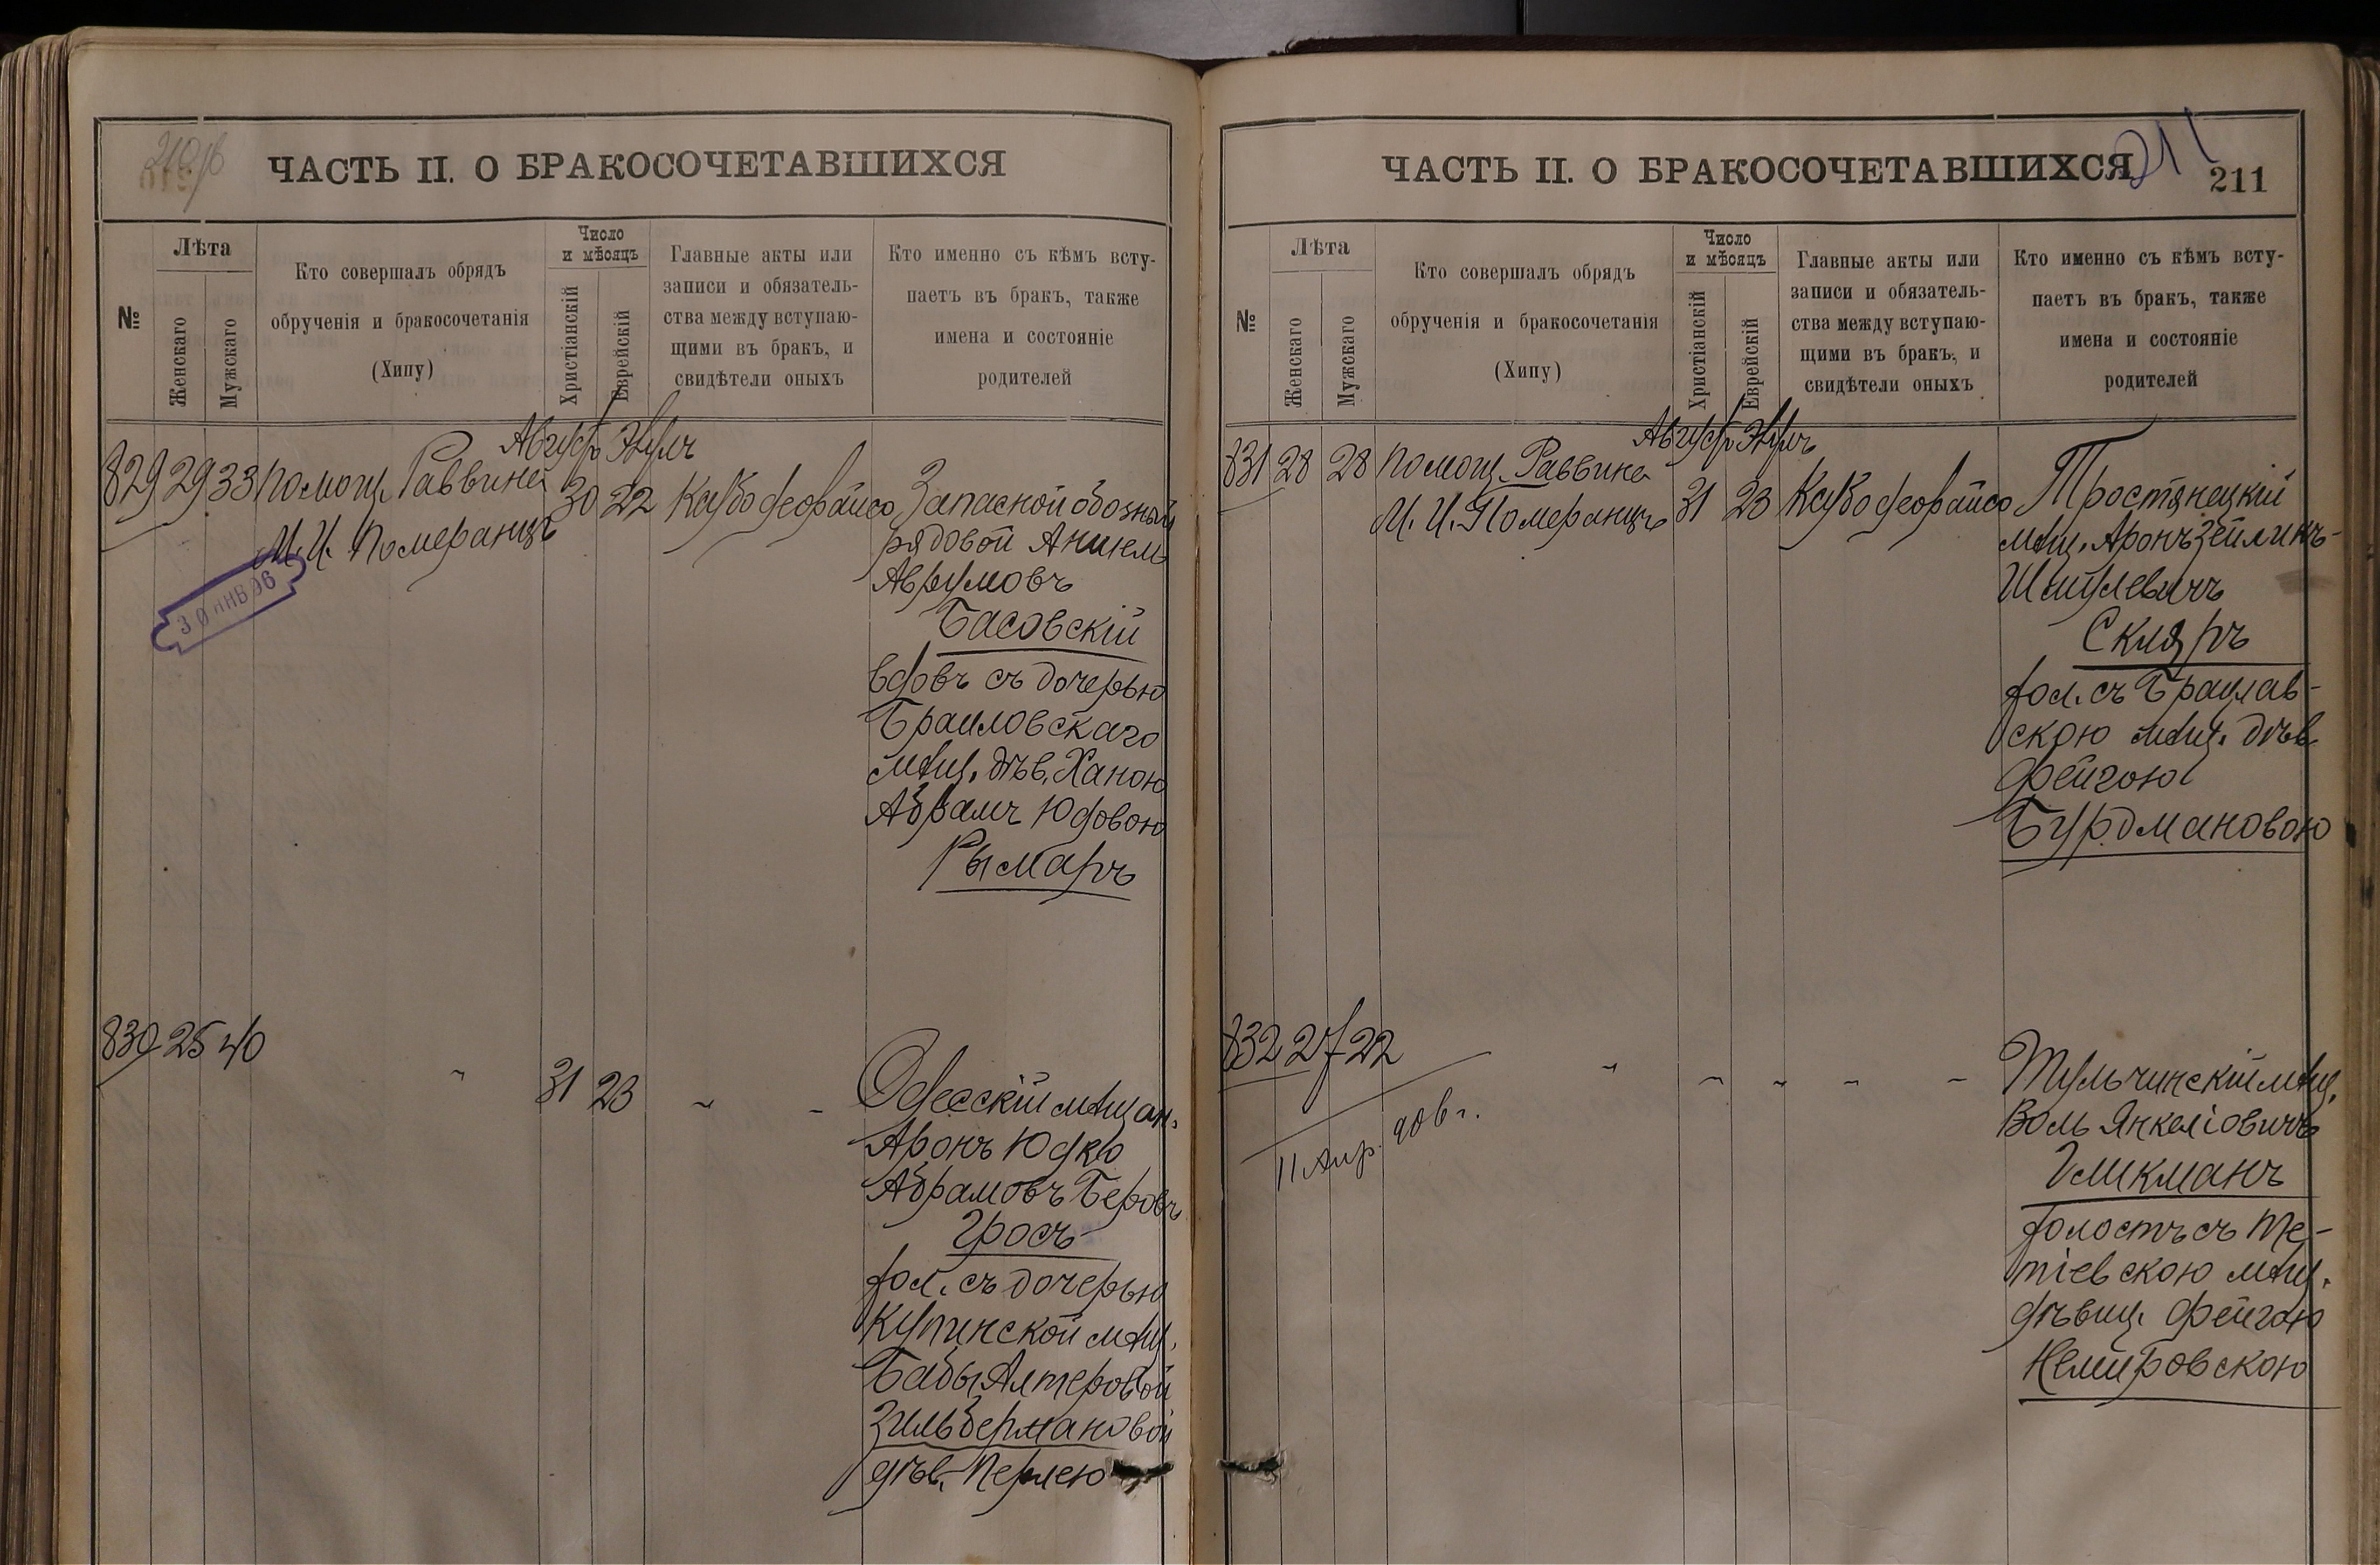 210/б
ЧАСТЬ II. О БРАКОСОЧЕТАВШИХСЯ
№
Лѣта
Женскаго
Мужскаго
Кто совершалъ обрядъ
обрученія и бракосочетанія
(Хипу)
Число
и мѣсяцъ
Христіанскій
Еврейскій
Главные акты или
записи и обязатель-
ства между вступаю-
щими въ бракъ, и
свидѣтели оныхъ
Кто именно съ кѣмъ всту-
паетъ въ бракъ, также
имена и состояніе
родителей
Август Элулъ
829 29 33 Помощ. Раввина
М. И. Померанцъ
30 22
Запасной обозный
рядовой Аншель
Аврумовъ
Басовскій
вдовъ съ дочерью
Браиловскаго
мѣщ. дѣв. Ханою
Абрамъ Юдовою
Рымаръ
30 ЯНВ 96
830 25 40
" 31 23 " "
Одесскій мѣщан.
Аронъ Юдко
Абрамовъ Беровъ
Гросъ
хол. съ дочерью
Купинской мѣщ.
Бабы Алтеровой
Зильбермановой
дѣв. Перлею
211
ЧАСТЬ II. О БРАКОСОЧЕТАВШИХСЯ
211
№
Лѣта
Женскаго
Мужскаго
Кто совершалъ обрядъ
обрученія и бракосочетанія
(Хипу)
Число
и мѣсяцъ
Христіанскій
Еврейскій
Главные акты или
записи и обязатель-
ства между вступаю-
щими въ бракъ, и
свидѣтели оныхъ
Кто именно съ кѣмъ всту-
паетъ въ бракъ, также
имена и состояніе
родителей
Август Элулъ
831 28 28 Помощ. Раввина
М. И. Померанцъ
31 23
Тростянецкій
мѣщ. Аронъ Зейликъ-
Шмулевичъ
Скляръ
хол. съ Брацлав-
скою мѣщ. дѣв.
Фейгою
Бурдмановою
832 27 22
" " " " "
11 Апр. 906 г.
Тульчинскій мѣщ.
Воль Янкеліовичъ
Гликманъ
холостъ съ Те-
тіевскою мѣщ.
дѣвиц. Фейгою
Немировскою